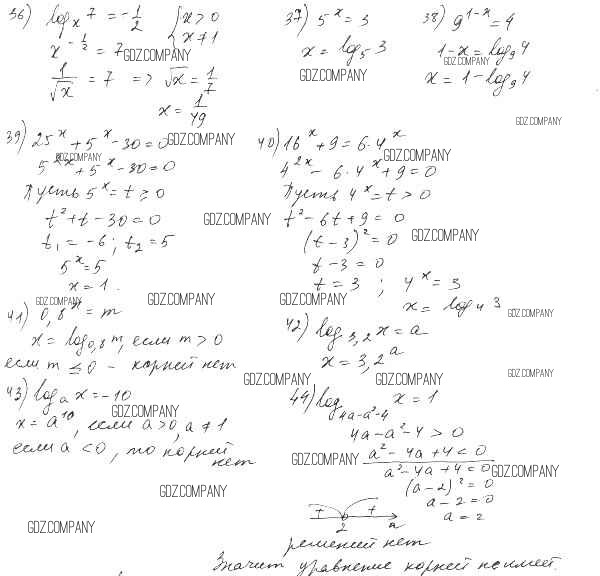 36) log_x 7 = -1/2 { x > 0
x ≠ 1
x^{-1/2} = 7
GDZ.COMPANY
1/√x = 7 => √x = 1/7
x = 1/49
37) 5^x = 3
x = log_5 3
GDZ.COMPANY
38) 9^{1-x} = 4
1-x = log_9 4
GDZ.COMPANY
x = 1 - log_9 4
GDZ.COMPANY
39) 25^x + 5^x - 30 = 0
GDZ.COMPANY
GDZ.COMPANY
5^{2x} + 5^x - 30 = 0
Пусть 5^x = t ≥ 0
t² + t - 30 = 0
GDZ.COMPANY
t_1 = -6; t_2 = 5
5^x = 5
x = 1.
40) 16^x + 9 = 6·4^x
GDZ.COMPANY
4^{2x} - 6·4^x + 9 = 0
Пусть 4^x = t > 0
t² - 6t + 9 = 0
(t-3)² = 0
GDZ.COMPANY
t - 3 = 0
t = 3 ; 4^x = 3
x = log_4 3
GDZ.COMPANY
GDZ.COMPANY
GDZ.COMPANY
GDZ.COMPANY
41) 0,8^x = m
x = log_{0,8} m, если m > 0
если m ≤ 0 - корней нет
42) log_{3,2} x = a
x = 3,2^a
GDZ.COMPANY
GDZ.COMPANY
GDZ.COMPANY
43) log_a x = -10
GDZ.COMPANY
x = a^{10}, если a > 0, a ≠ 1
если a < 0, то корней
нет
GDZ.COMPANY
GDZ.COMPANY
44) log_{4a-a²-4} x = 1
4a - a² - 4 > 0
a² - 4a + 4 < 0
GDZ.COMPANY
a² - 4a + 4 = 0
GDZ.COMPANY
(a-2)² = 0
a - 2 = 0
a = 2
+ +
2 a
решений нет
Значит уравнение корней не имеет.